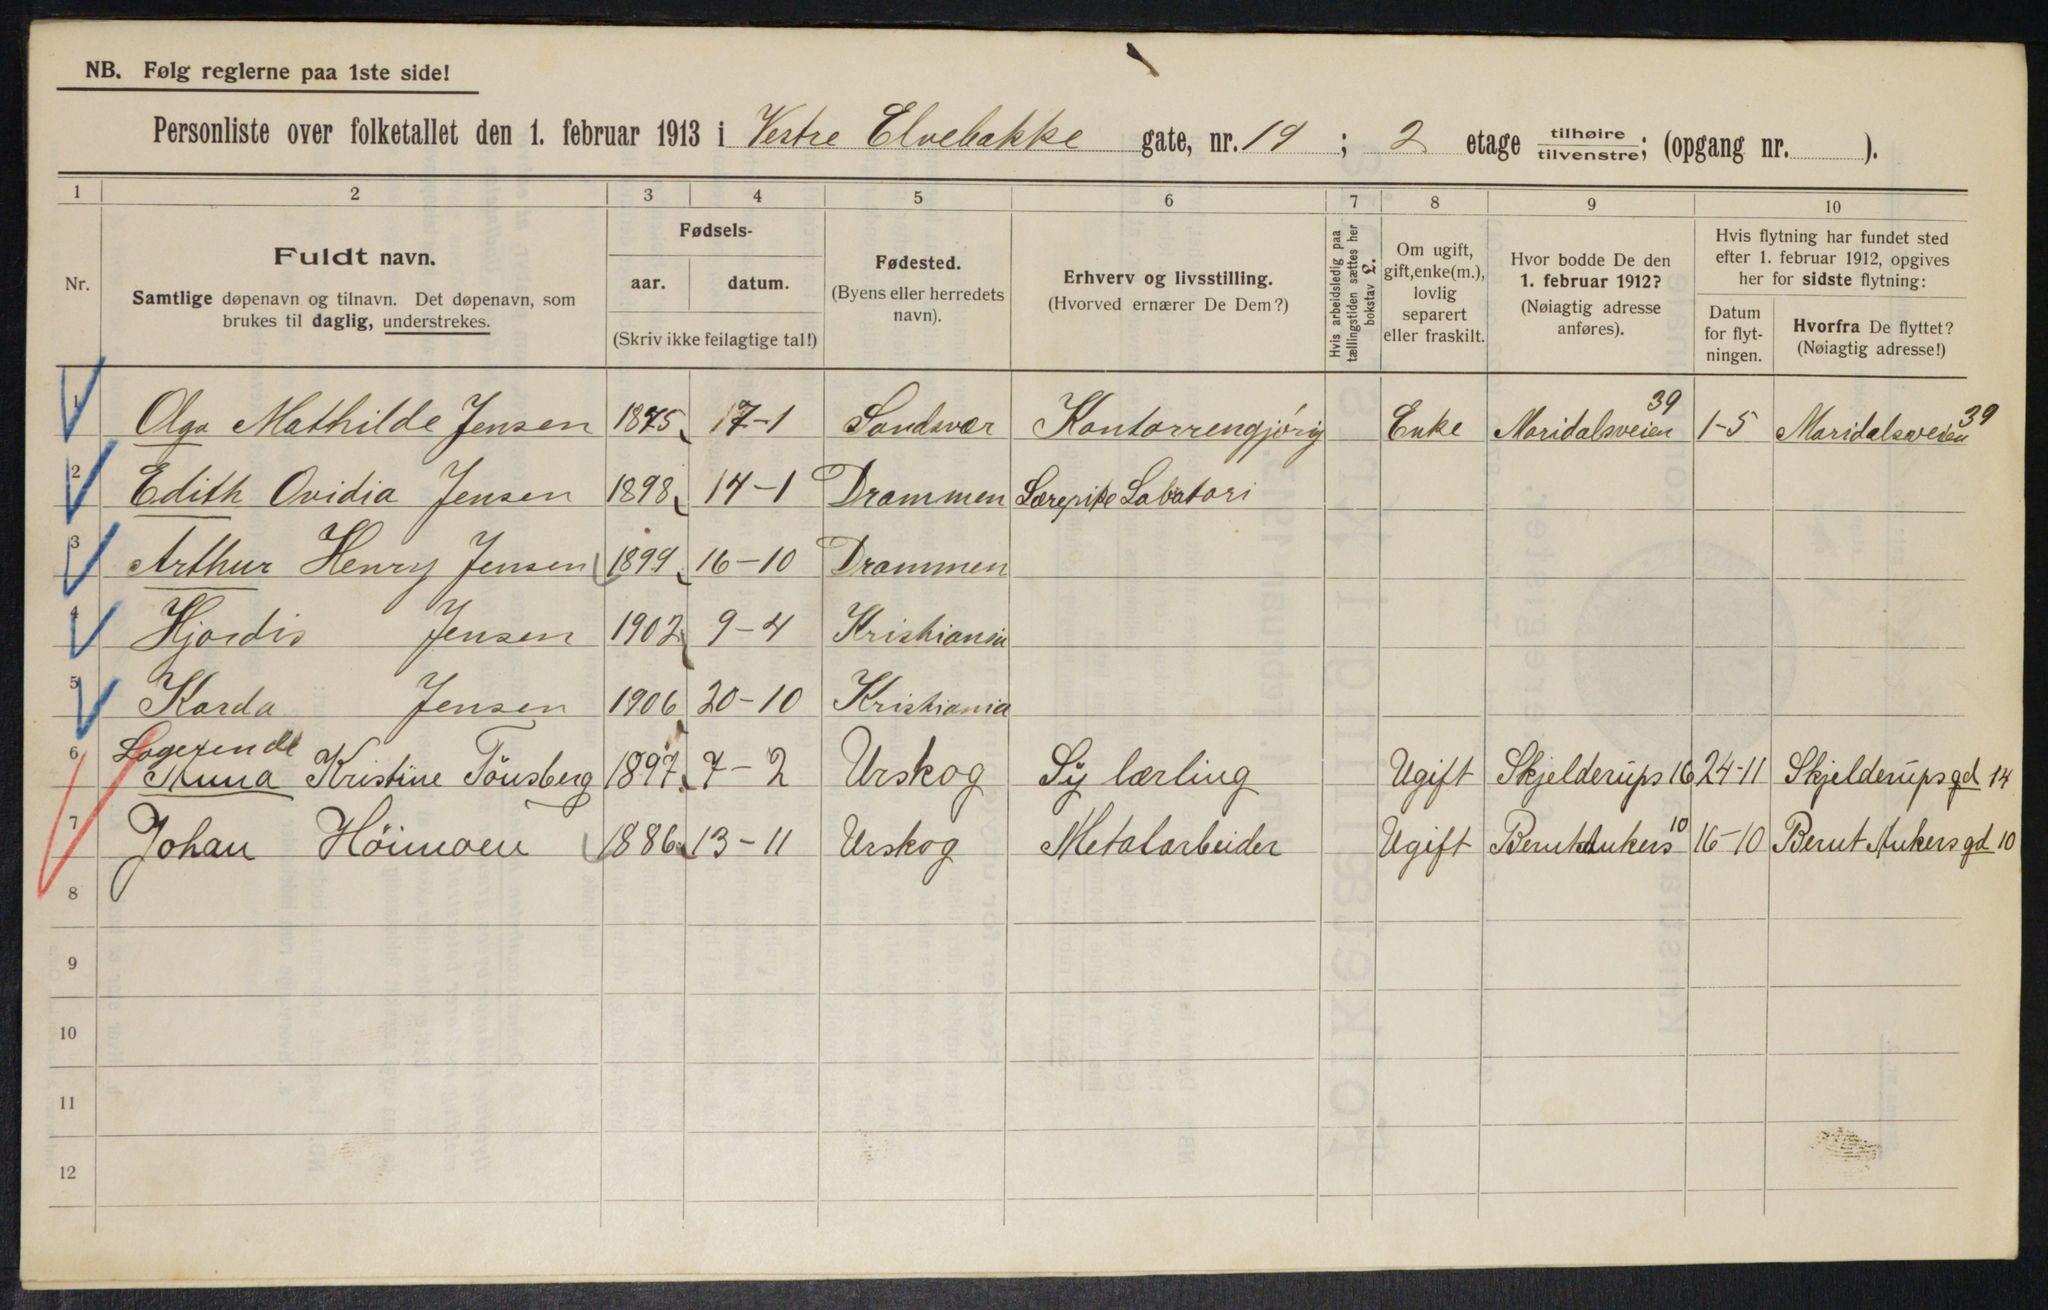 NB. Følg reglerne paa 1ste side!
Personliste over folketallet den 1. februar 1913 i Vestre Elvebakke gate, nr. 19 ; 2 etage tilhøire/tilvenstre; (opgang nr. ).
1 2 3 4 5 6 7 8 9 10
Nr.
Fuldt navn.
Samtlige døpenavn og tilnavn. Det døpenavn, som
brukes til daglig, understrekes.
Fødsels-
aar. datum.
(Skriv ikke feilagtige tal!)
Fødested.
(Byens eller herredets
navn).
Erhverv og livsstilling.
(Hvorved ernærer De Dem?)
Hvis arbeidsledig paa
tællingstiden sættes her
bokstav £.
Om ugift,
gift, enke(m.),
lovlig
separert
eller fraskilt.
Hvor bodde De den
1. februar 1912?
(Nøiagtig adresse
anføres).
Hvis flytning har fundet sted
efter 1. februar 1912, opgives
her for sidste flytning:
Datum
for flyt-
ningen.
Hvorfra De flyttet?
(Nøiagtig adresse!)
1 Olga Mathilde Jensen 1875 17-1 Sandsvær Kontorrengjøring Enke Maridalsveien 39 1-5 Maridalsveien 39
2 Edith Ovidia Jensen 1898 14-1 Drammen Lærepike Labatori
3 Arthur Henry Jensen 1899 16-10 Drammen
4 Hjordis Jensen 1902 9-4 Kristiania
5 Karda Jensen 1906 20-10 Kristiania
6 Logerende
Anna Kristine Tönsberg 1897 7-2 Urskog Sy lærling Ugift Skjelderups 16 24-11 Skjelderups gd 14
7 Johan Höimoen 1886 13-11 Urskog Metalarbeider Ugift Bernt Ankers 10 16-10 Bernt Ankers gd 10
8
9
10
11
12